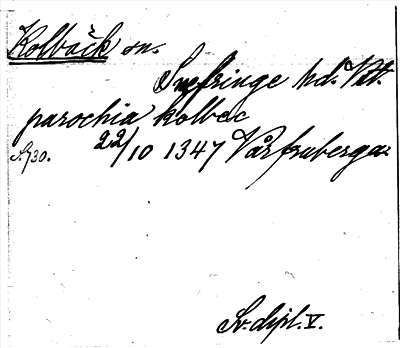 Kolbäck sn.
Snefringe hd. Vstl.
parochia kolbec
S. 730. 22/10 1347 Vårfruberga
Sv. dipl. V.